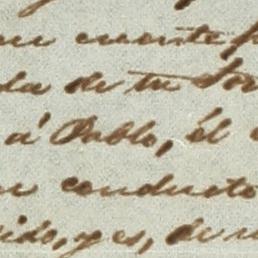 cuente
da de tu
á Pablo, él
conducto
ido, y es, de